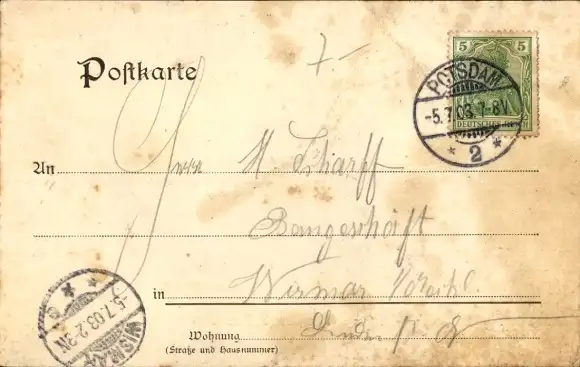 7.-
5 5
DEUTSCHES REICH
POTSDAM
-5.7.03.7-8V
* 2 *
Postkarte
An Herrn H. Scharff
Baugeschäft
in Wismar
Wohnung
(Straße und Hausnummer)
WISMAR
-5.7.03.2-3N